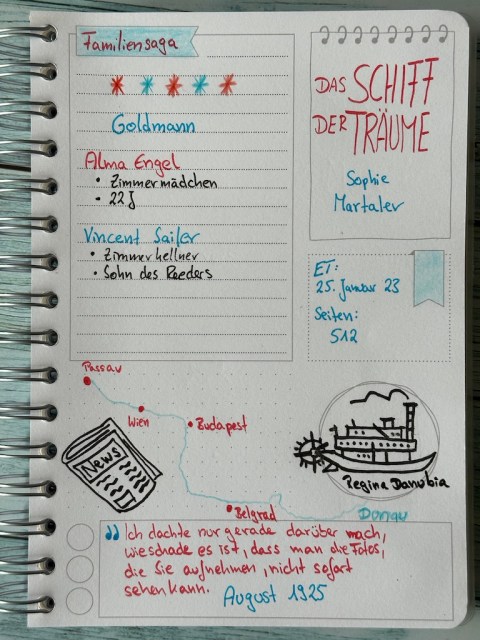 Familiensaga
Goldmann
Alma Engel
• Zimmermädchen
• 22J
Vincent Sailer
• Zimmerkellner
• Sohn des Reeders
DAS SCHIFF
DER TRÄUME
Sophie
Martaler
ET:
25. Januar 23
Seiten:
512
Passau
Wien
Budapest
Belgrad
Donau
News
Regina Danubia
"Ich dachte nur gerade darüber nach,
wie schade es ist, dass man die Fotos,
die Sie aufnehmen, nicht sofort
sehen kann.
August 1925